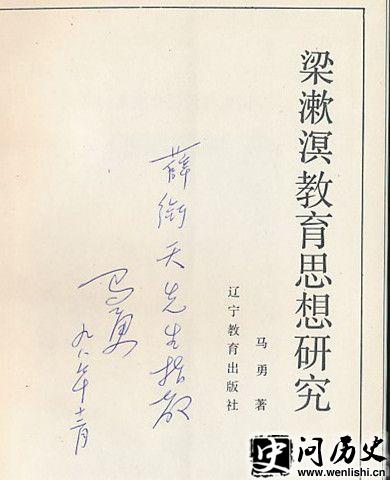 梁漱溟教育思想研究
马勇 著
辽宁教育出版社
薛衔天先生指教
马勇
九八年十二月
史问历史
www.wenlishi.cn